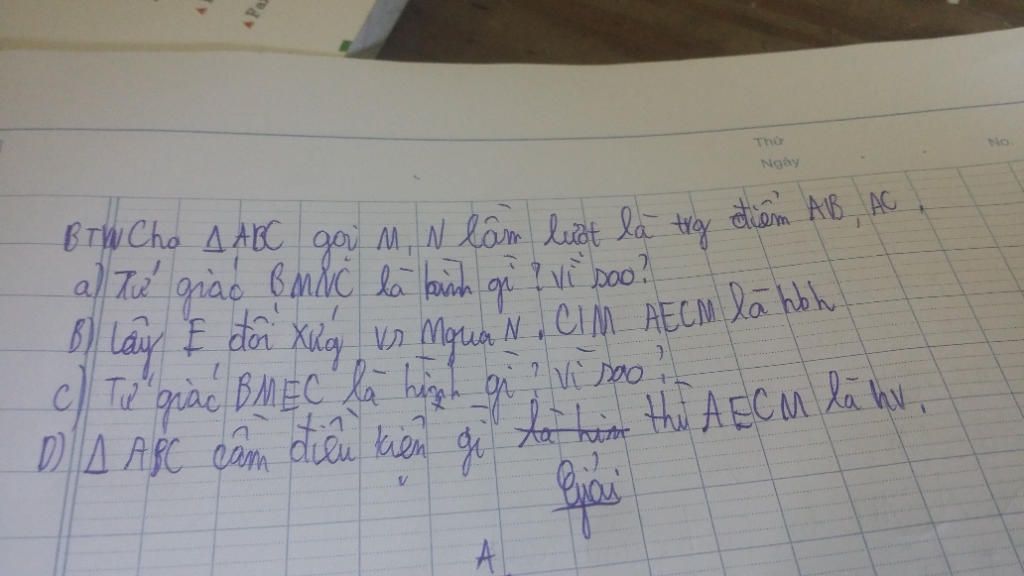 Thứ
Ngày
No.
BTVN Cho Δ ABC gọi M, N lần lượt là trg điểm AB, AC.
a) Tứ giác BMNC là hình gì? Vì sao?
B) Lấy E đối xứg vs M qua N. C/M AECM là hbh
C) Tứ giác BMEC là hình gì? Vì sao?
D) Δ ABC cần điều kiện gì là hình thì AECM là hv.
Giải
A